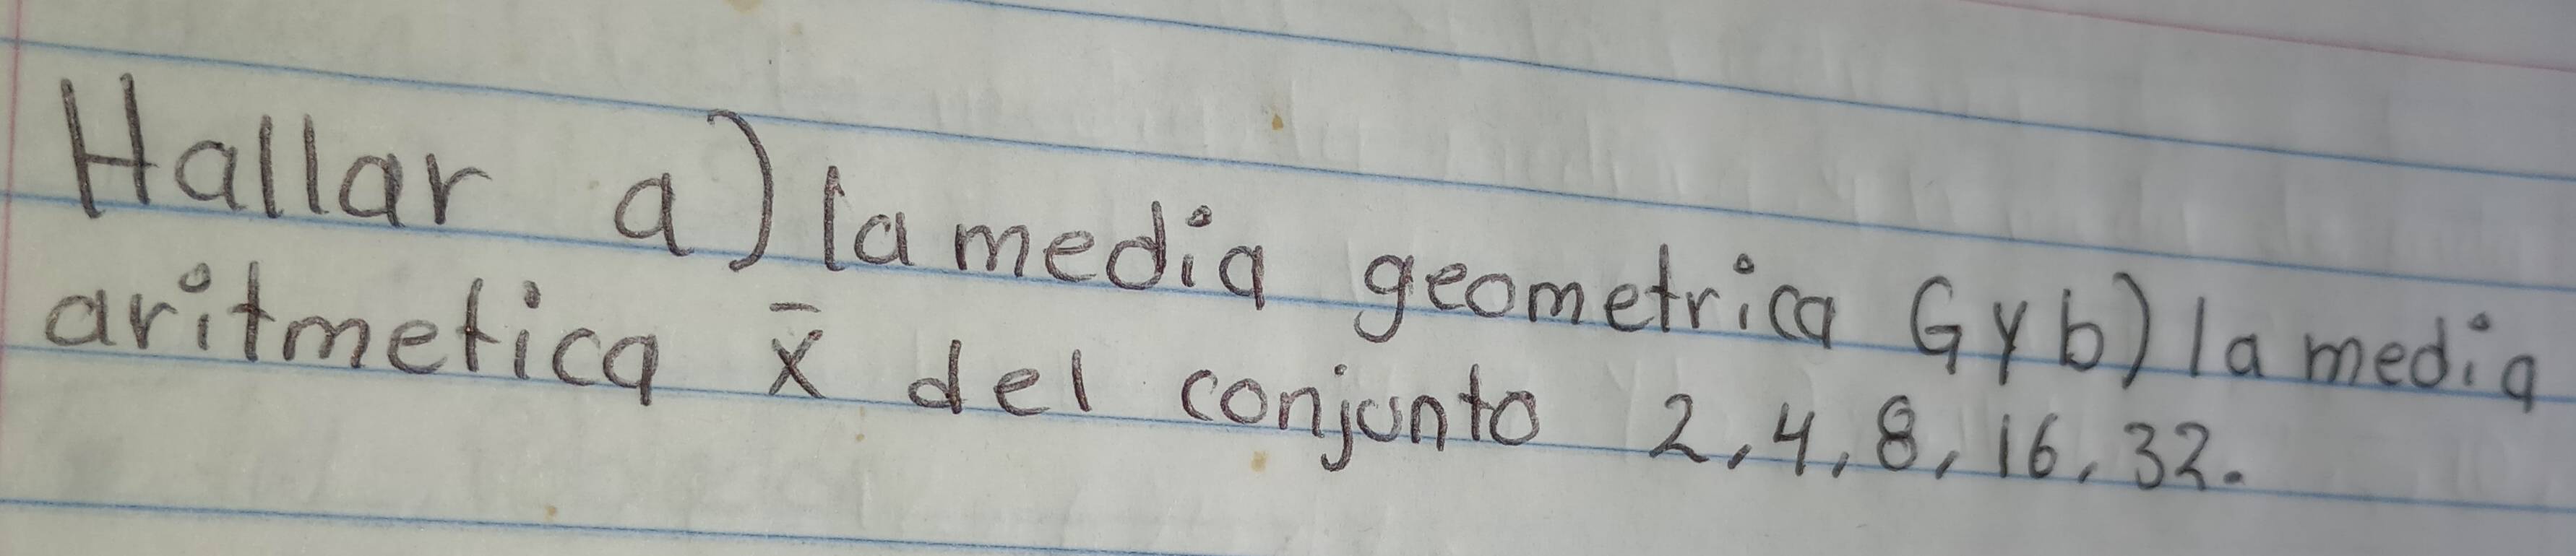 Hallar a) la media geometrica G y b) la media
aritmetica x̄ del conjunto 2, 4, 8, 16, 32.